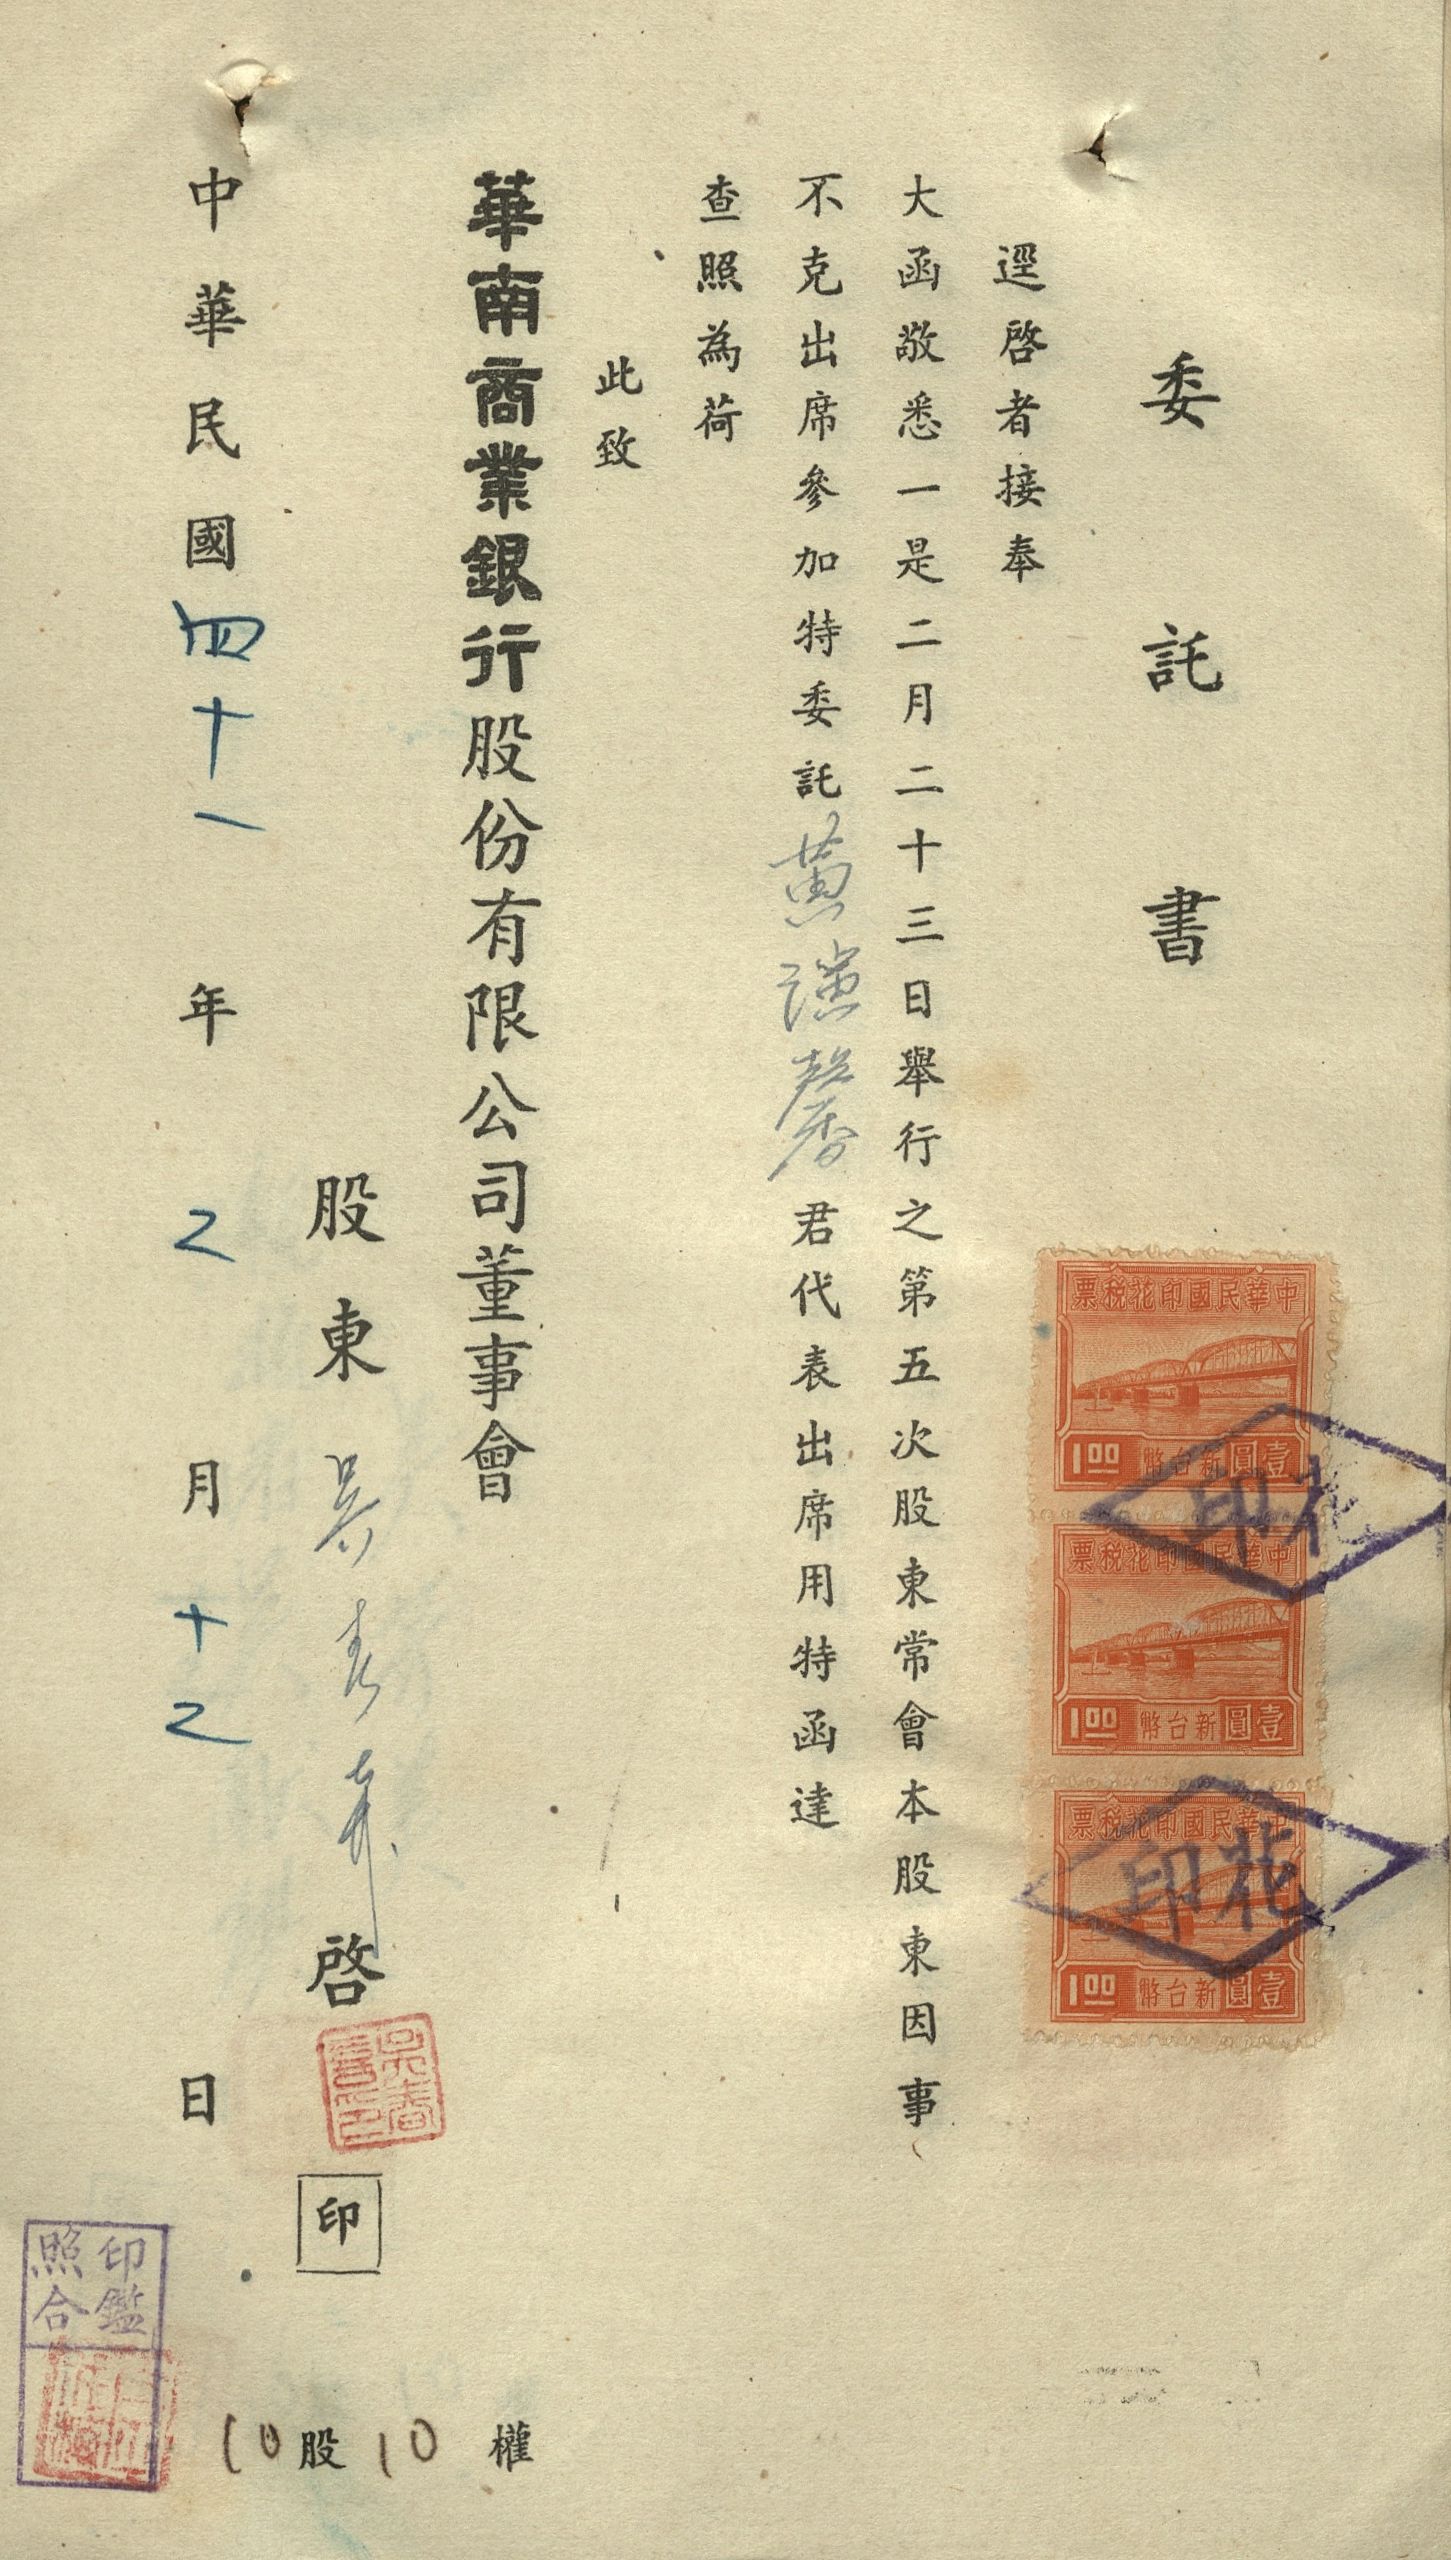 委託書
逕啓者接奉
大函敬悉一是二月二十三日舉行之第五次股東常會本股東因事
不克出席參加特委託黃演馨君代表出席用特函達
查照為荷
此致
華南商業銀行股份有限公司董事會
股東吳春啓
印
中華民國四十一年2月十2日
10股10權
中華民國印花稅票
壹圓新台幣
1.00
中華民國印花稅票
壹圓新台幣
1.00
中華民國印花稅票
壹圓新台幣
1.00
印花
印花
印鑑
照合